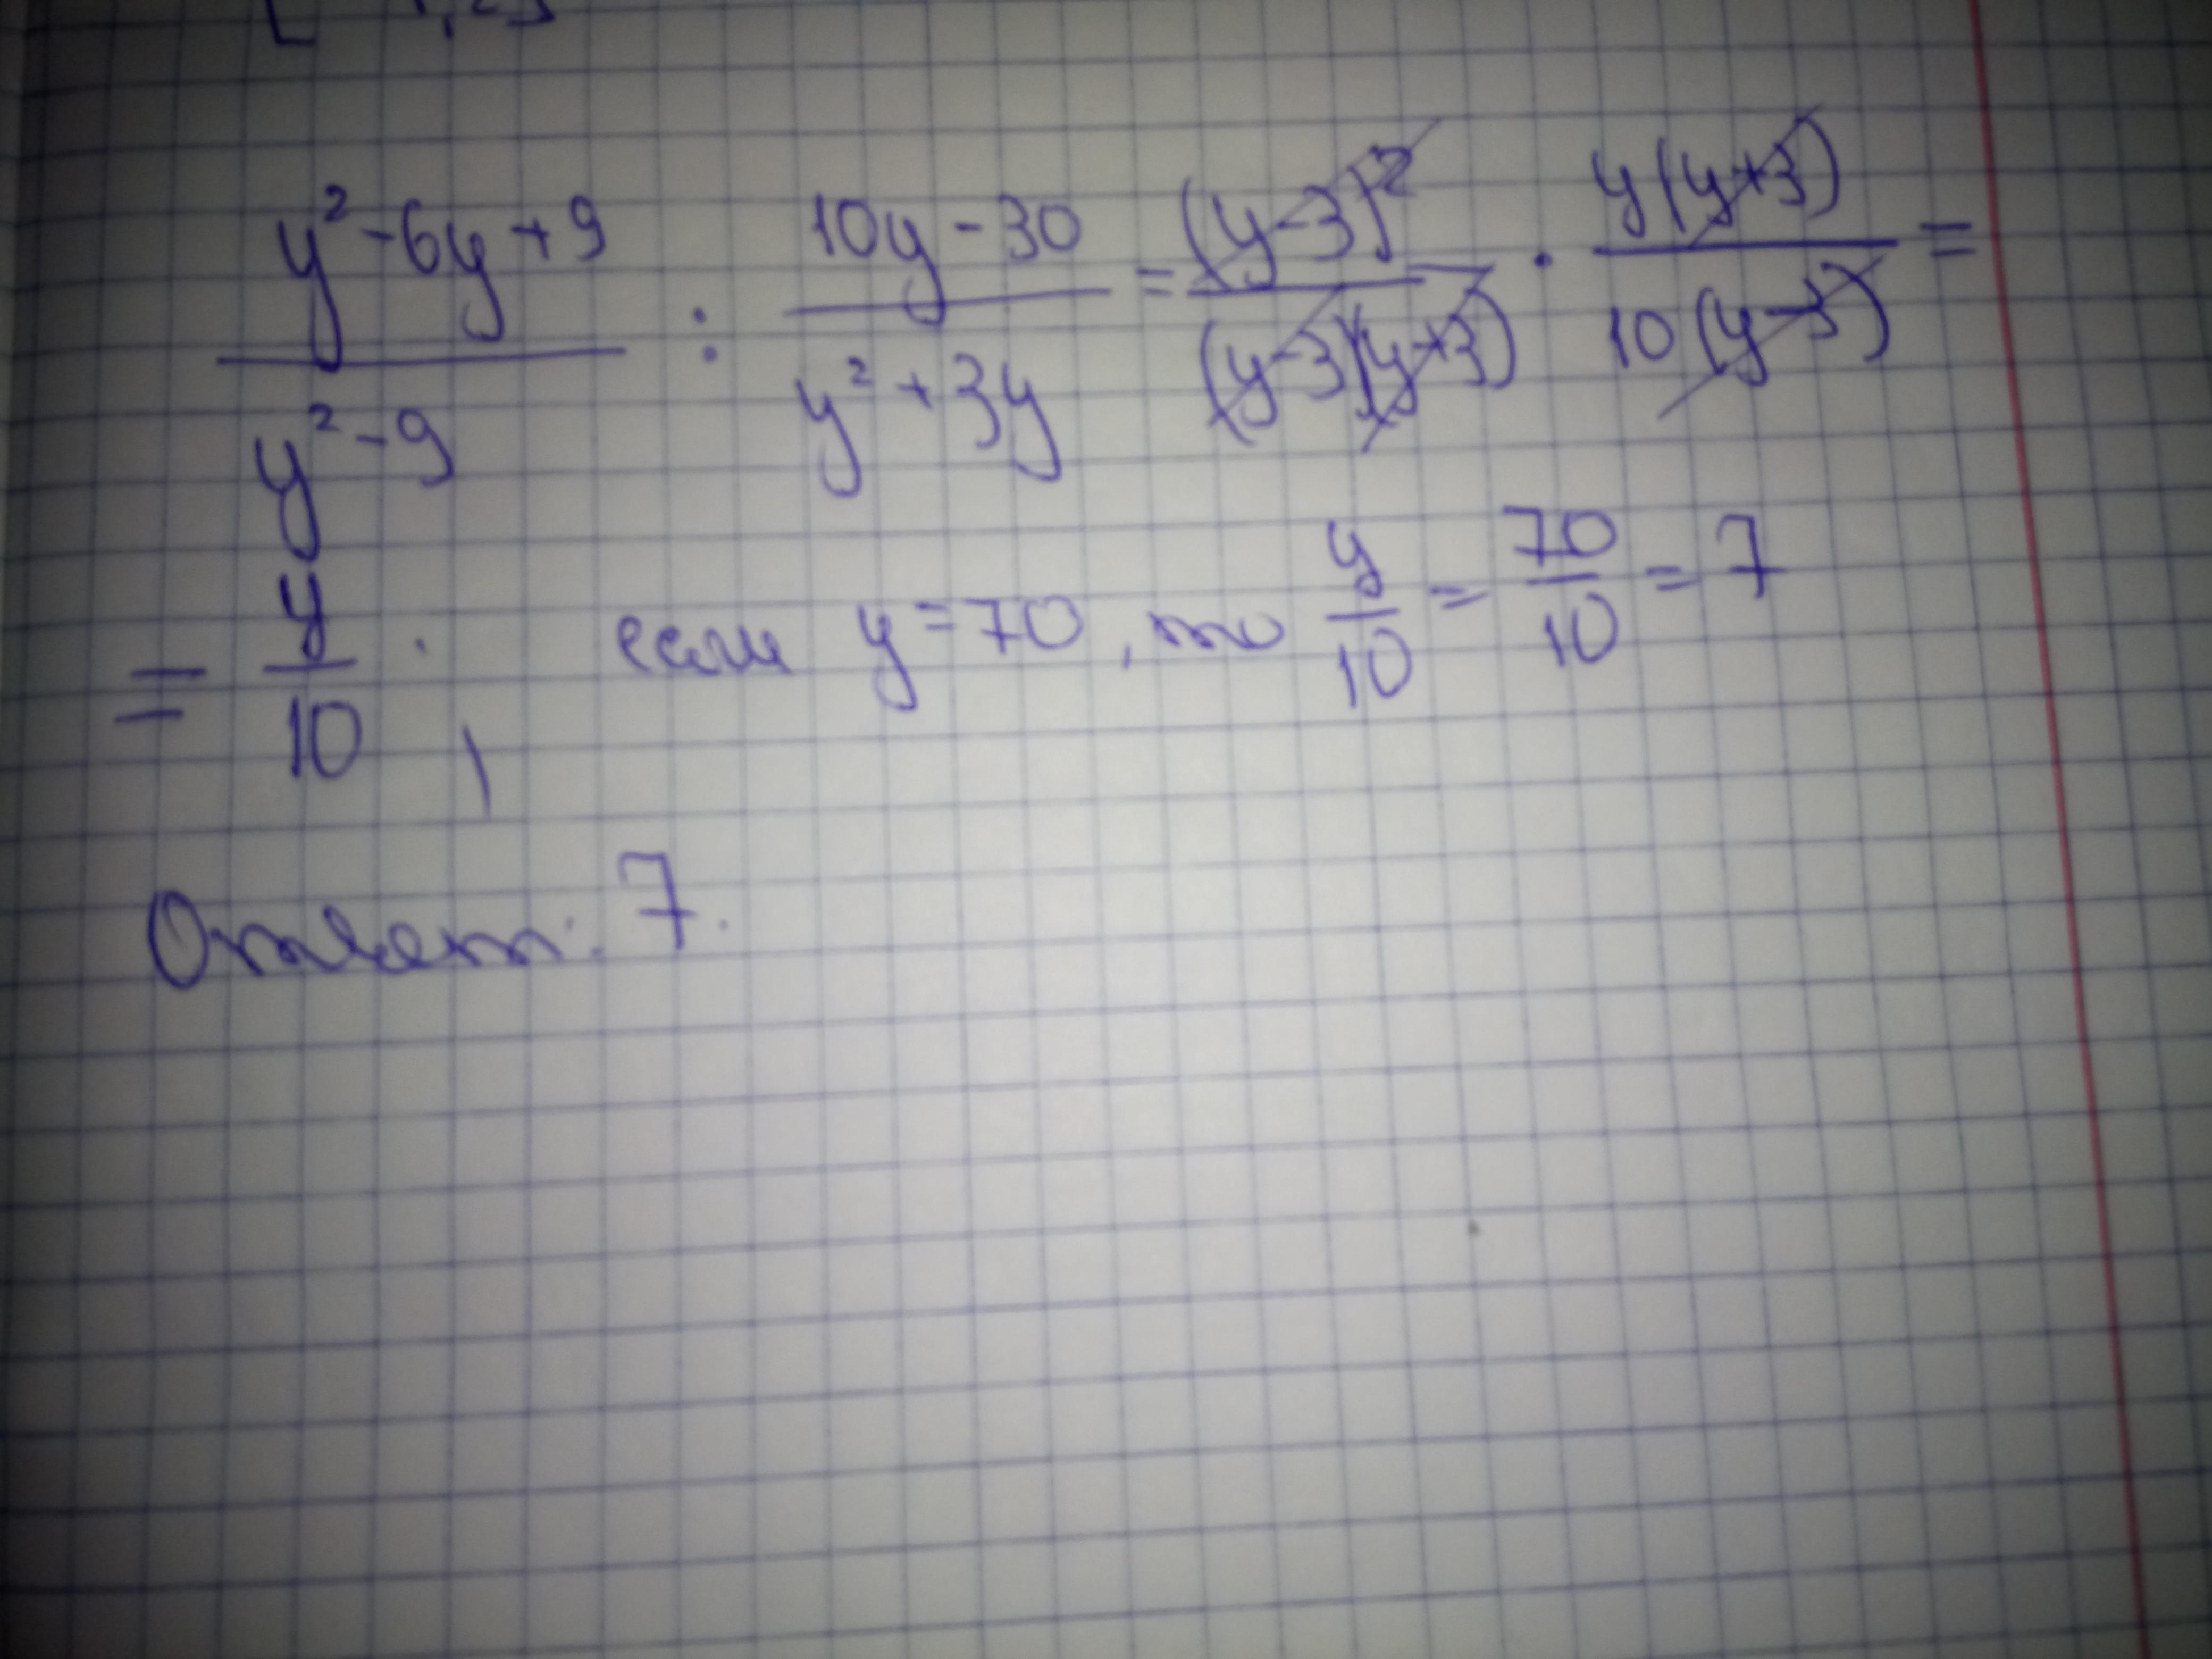 (y²-6y+9)/(y²-9) : (10y-30)/(y²+3y) = (y-3)²/((y-3)(y+3)) · y(y+3)/(10(y-3)) =
= y/10 , если y=70, то y/10 = 70/10 = 7
Ответ: 7.